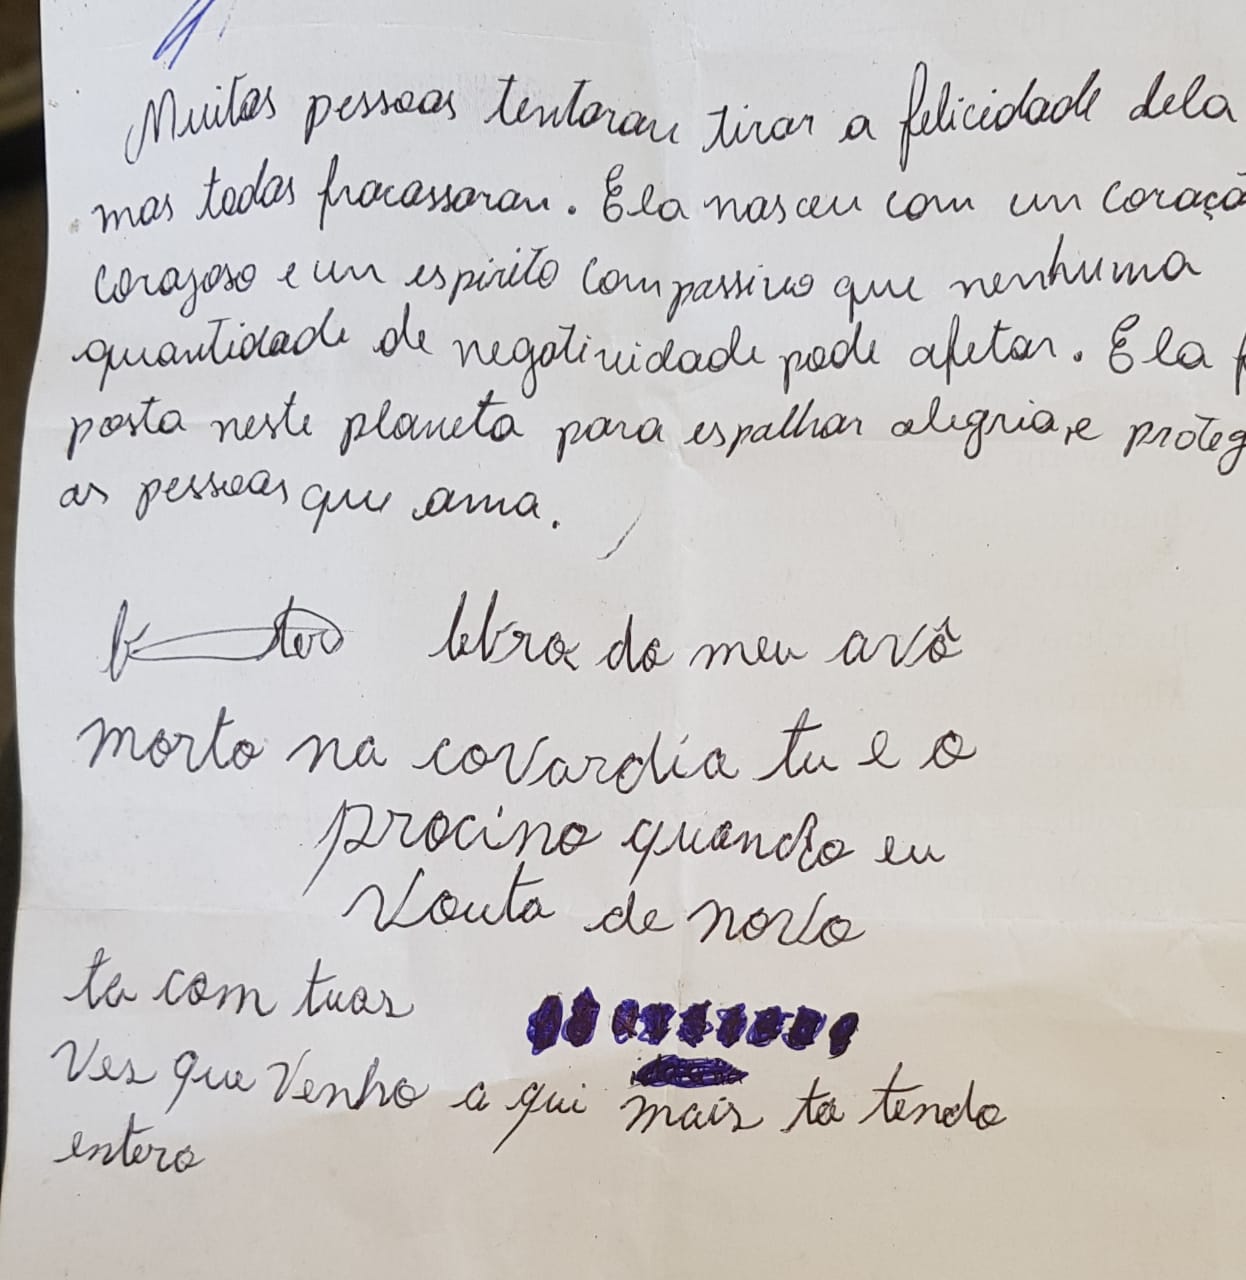 Muitas pessoas tentaran tirar a felicidade dela
mas todas fracassaran. Ela nasceu com un coraçã
corajoso e un espirito compassivo que nenhuma
quantidade de negatividade pode afetar. Ela f
posta neste planeta para espalhar alegria, e proteg
as pessoas que ama.
letra do meu avô
morto na covardia tu e o
procino quando eu
vouta de novo
ta com tuas
ves que venho a qui mais ta tendo
entero